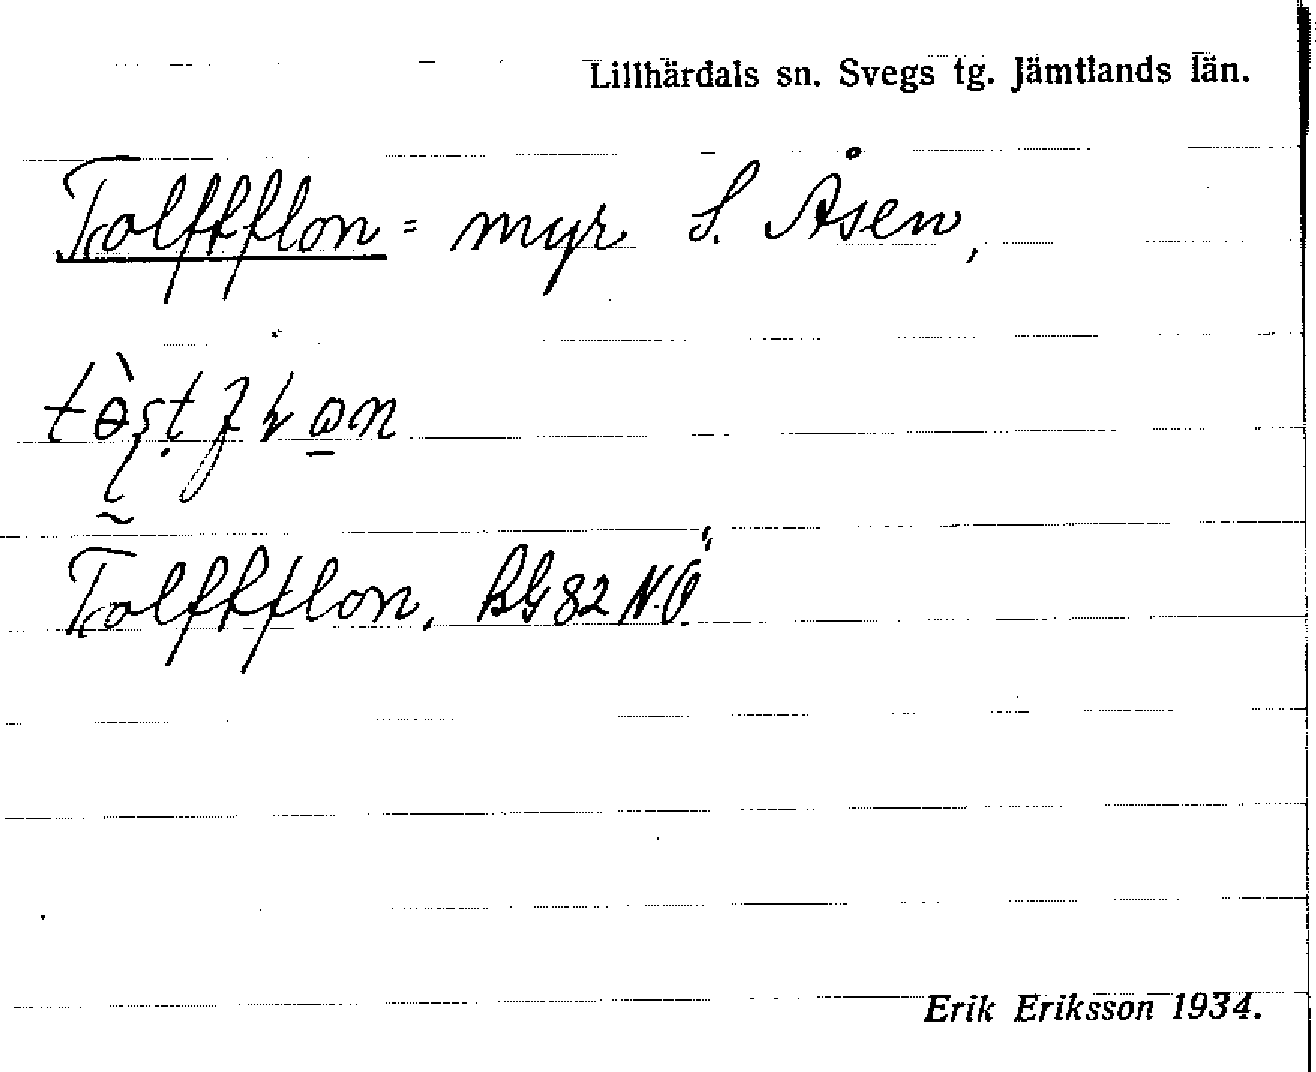 Lillhärdals sn. Svegs tg. Jämtlands län.
Tolfkflon = myr S. Åsen,
Tolfkflon, BG 82 N.Ö
Erik Eriksson 1934.